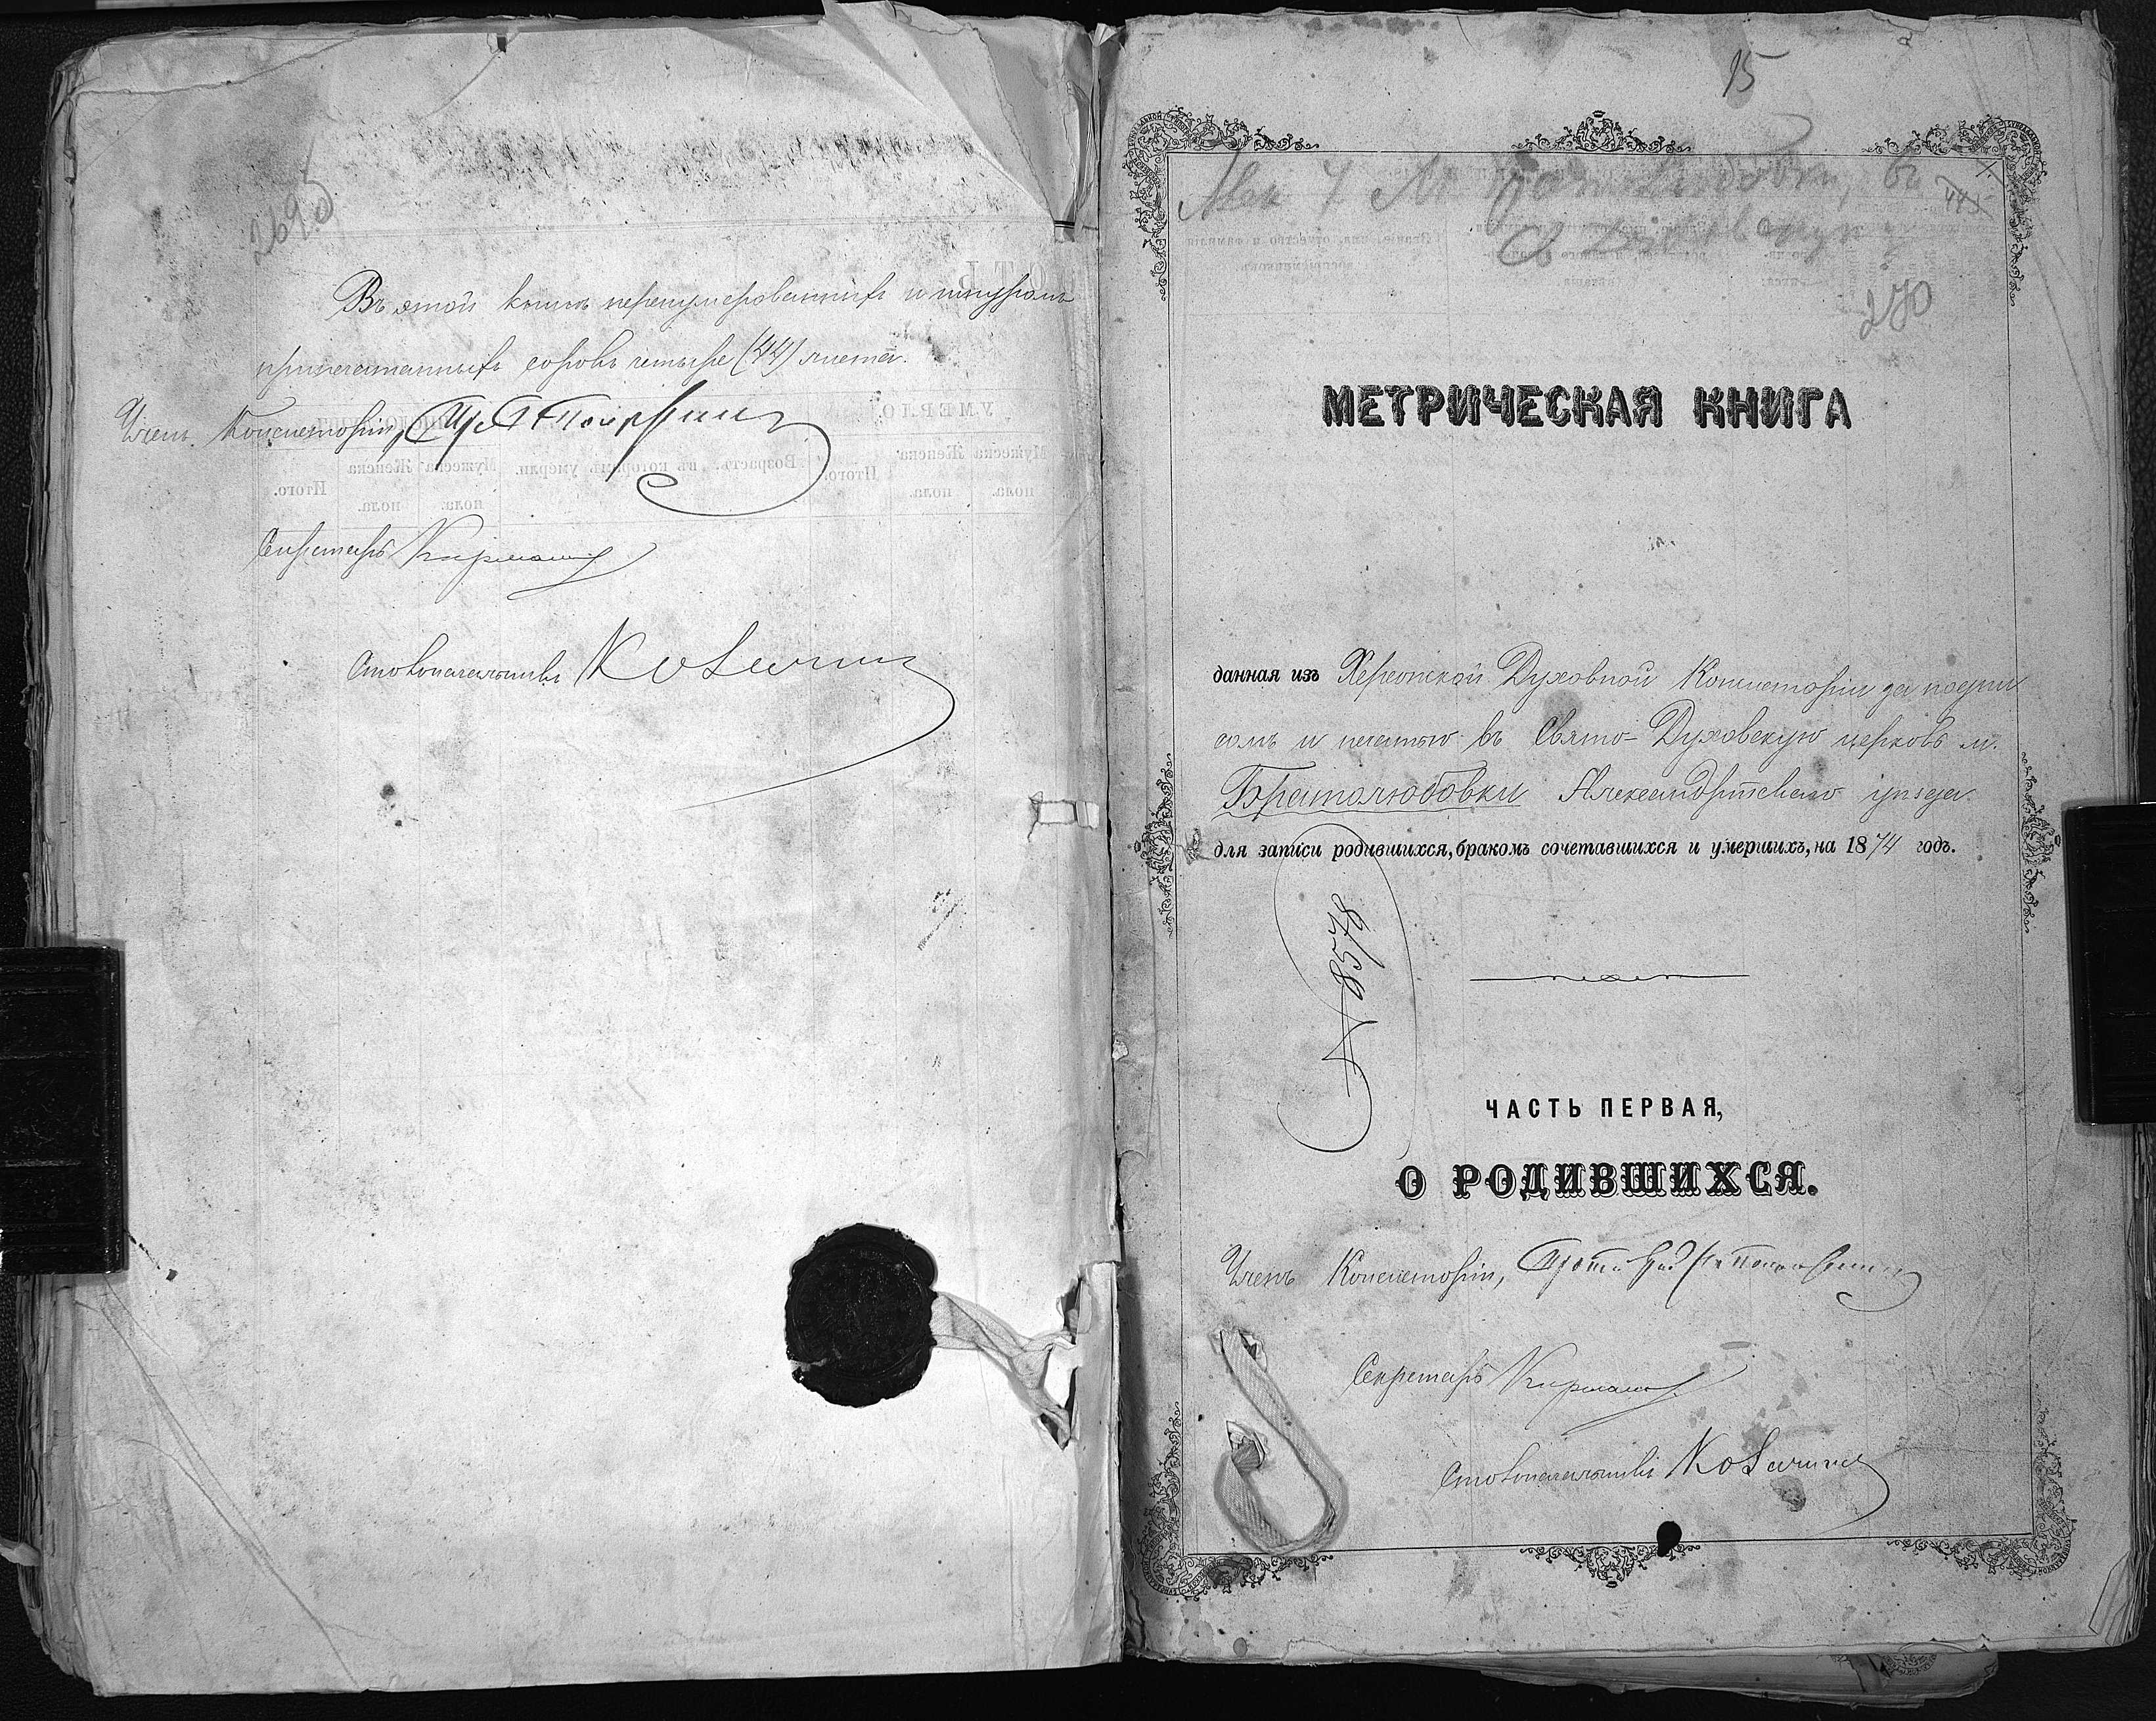 269об
Въ этой книгѣ перенумерованныхъ и шнуромъ
припечатанныхъ сорокъ четыре (44) листа.
Членъ Консисторіи,
Секретарь
Столоначальникъ
15
445
270
МЕТРИЧЕСКАЯ КНИГА
данная изъ Херсонской Духовной Консисторіи за подпи
сомъ и печатью въ Свято-Духовскую церковь м.
Братолюбовки Александрійскаго уѣзда
для записи родившихся, бракомъ сочетавшихся и умершихъ, на 1874 годъ.
№ 8578
ЧАСТЬ ПЕРВАЯ,
О РОДИВШИХСЯ.
Членъ Консисторіи,
Секретарь
Столоначальникъ